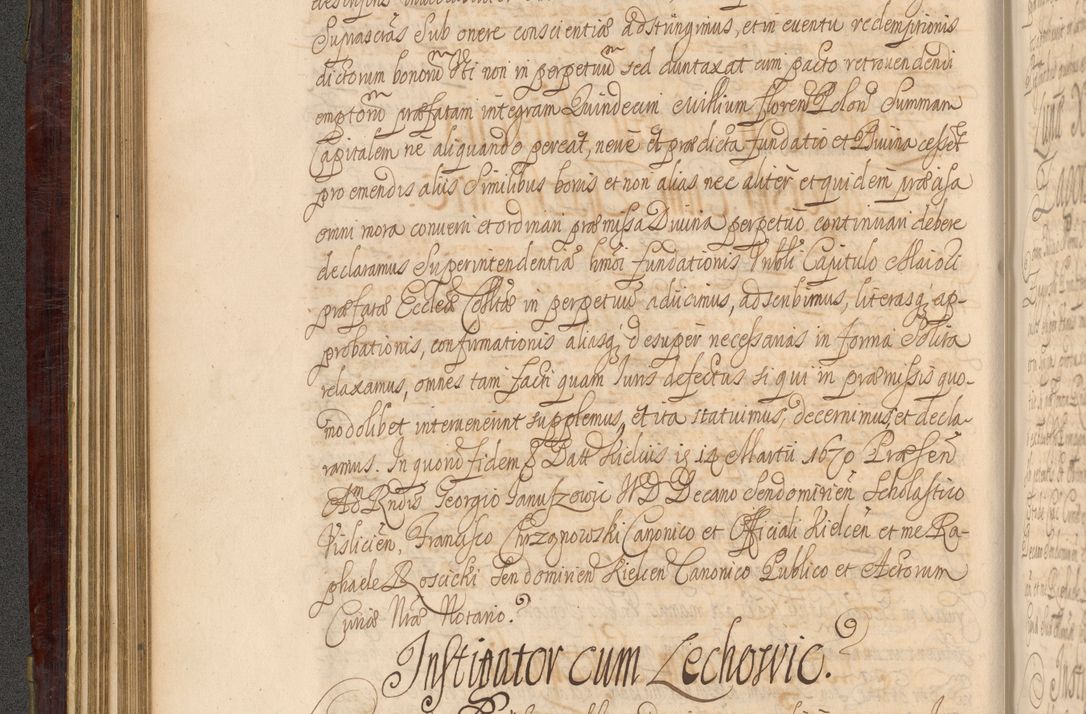 Suprascrãs Sub onere conscientiæ adstringimus, et in eventu redemptionis
dictorum bonorũ Nti non in perpetuũ sed duntaxat cum pacto retrovendendi
emptorũ præfatam integram Quindecim Millium floren Polon Summam
Capitalem ne aliquando pereat, neve et prædicta fundatio et Divina cesset
pro emendis aliis Similibus bonis et non alias nec aliter et quidem præcisa
omni mora converti et ordinari præmissa Divina perpetuo continuari debere
declaramus Superintendentiã hmoi fundationis Vnbli Capitulo Maiori
præfatæ Ecclesiæ Colltæ in perpetuũ aducimus, adscribimus, literasq; ap-
probationis, confirmationis aliasq; desuper necessarias in forma Solita
relaxamus, omnes tam facti quam Juris defectus si qui in præmissis quo-
modolibet intervenerint supplemus, et ita statuimus, decernimus, et decla-
ramus. In quorũ fidem Datt Kielcis 14 Martii 1670 Præsen
Adm Rndis Georgio Januszowic Decano Sendomirien Scholastico
Vislicien, Francisco Chrzanowszki Canonico et Officiali Kielcen et me Ra-
phaele Roscicki Sendomirien Kielcen Canonico Publico et Actorum
Curiæ Nræ Notario.
Instigator cum Lechowic.